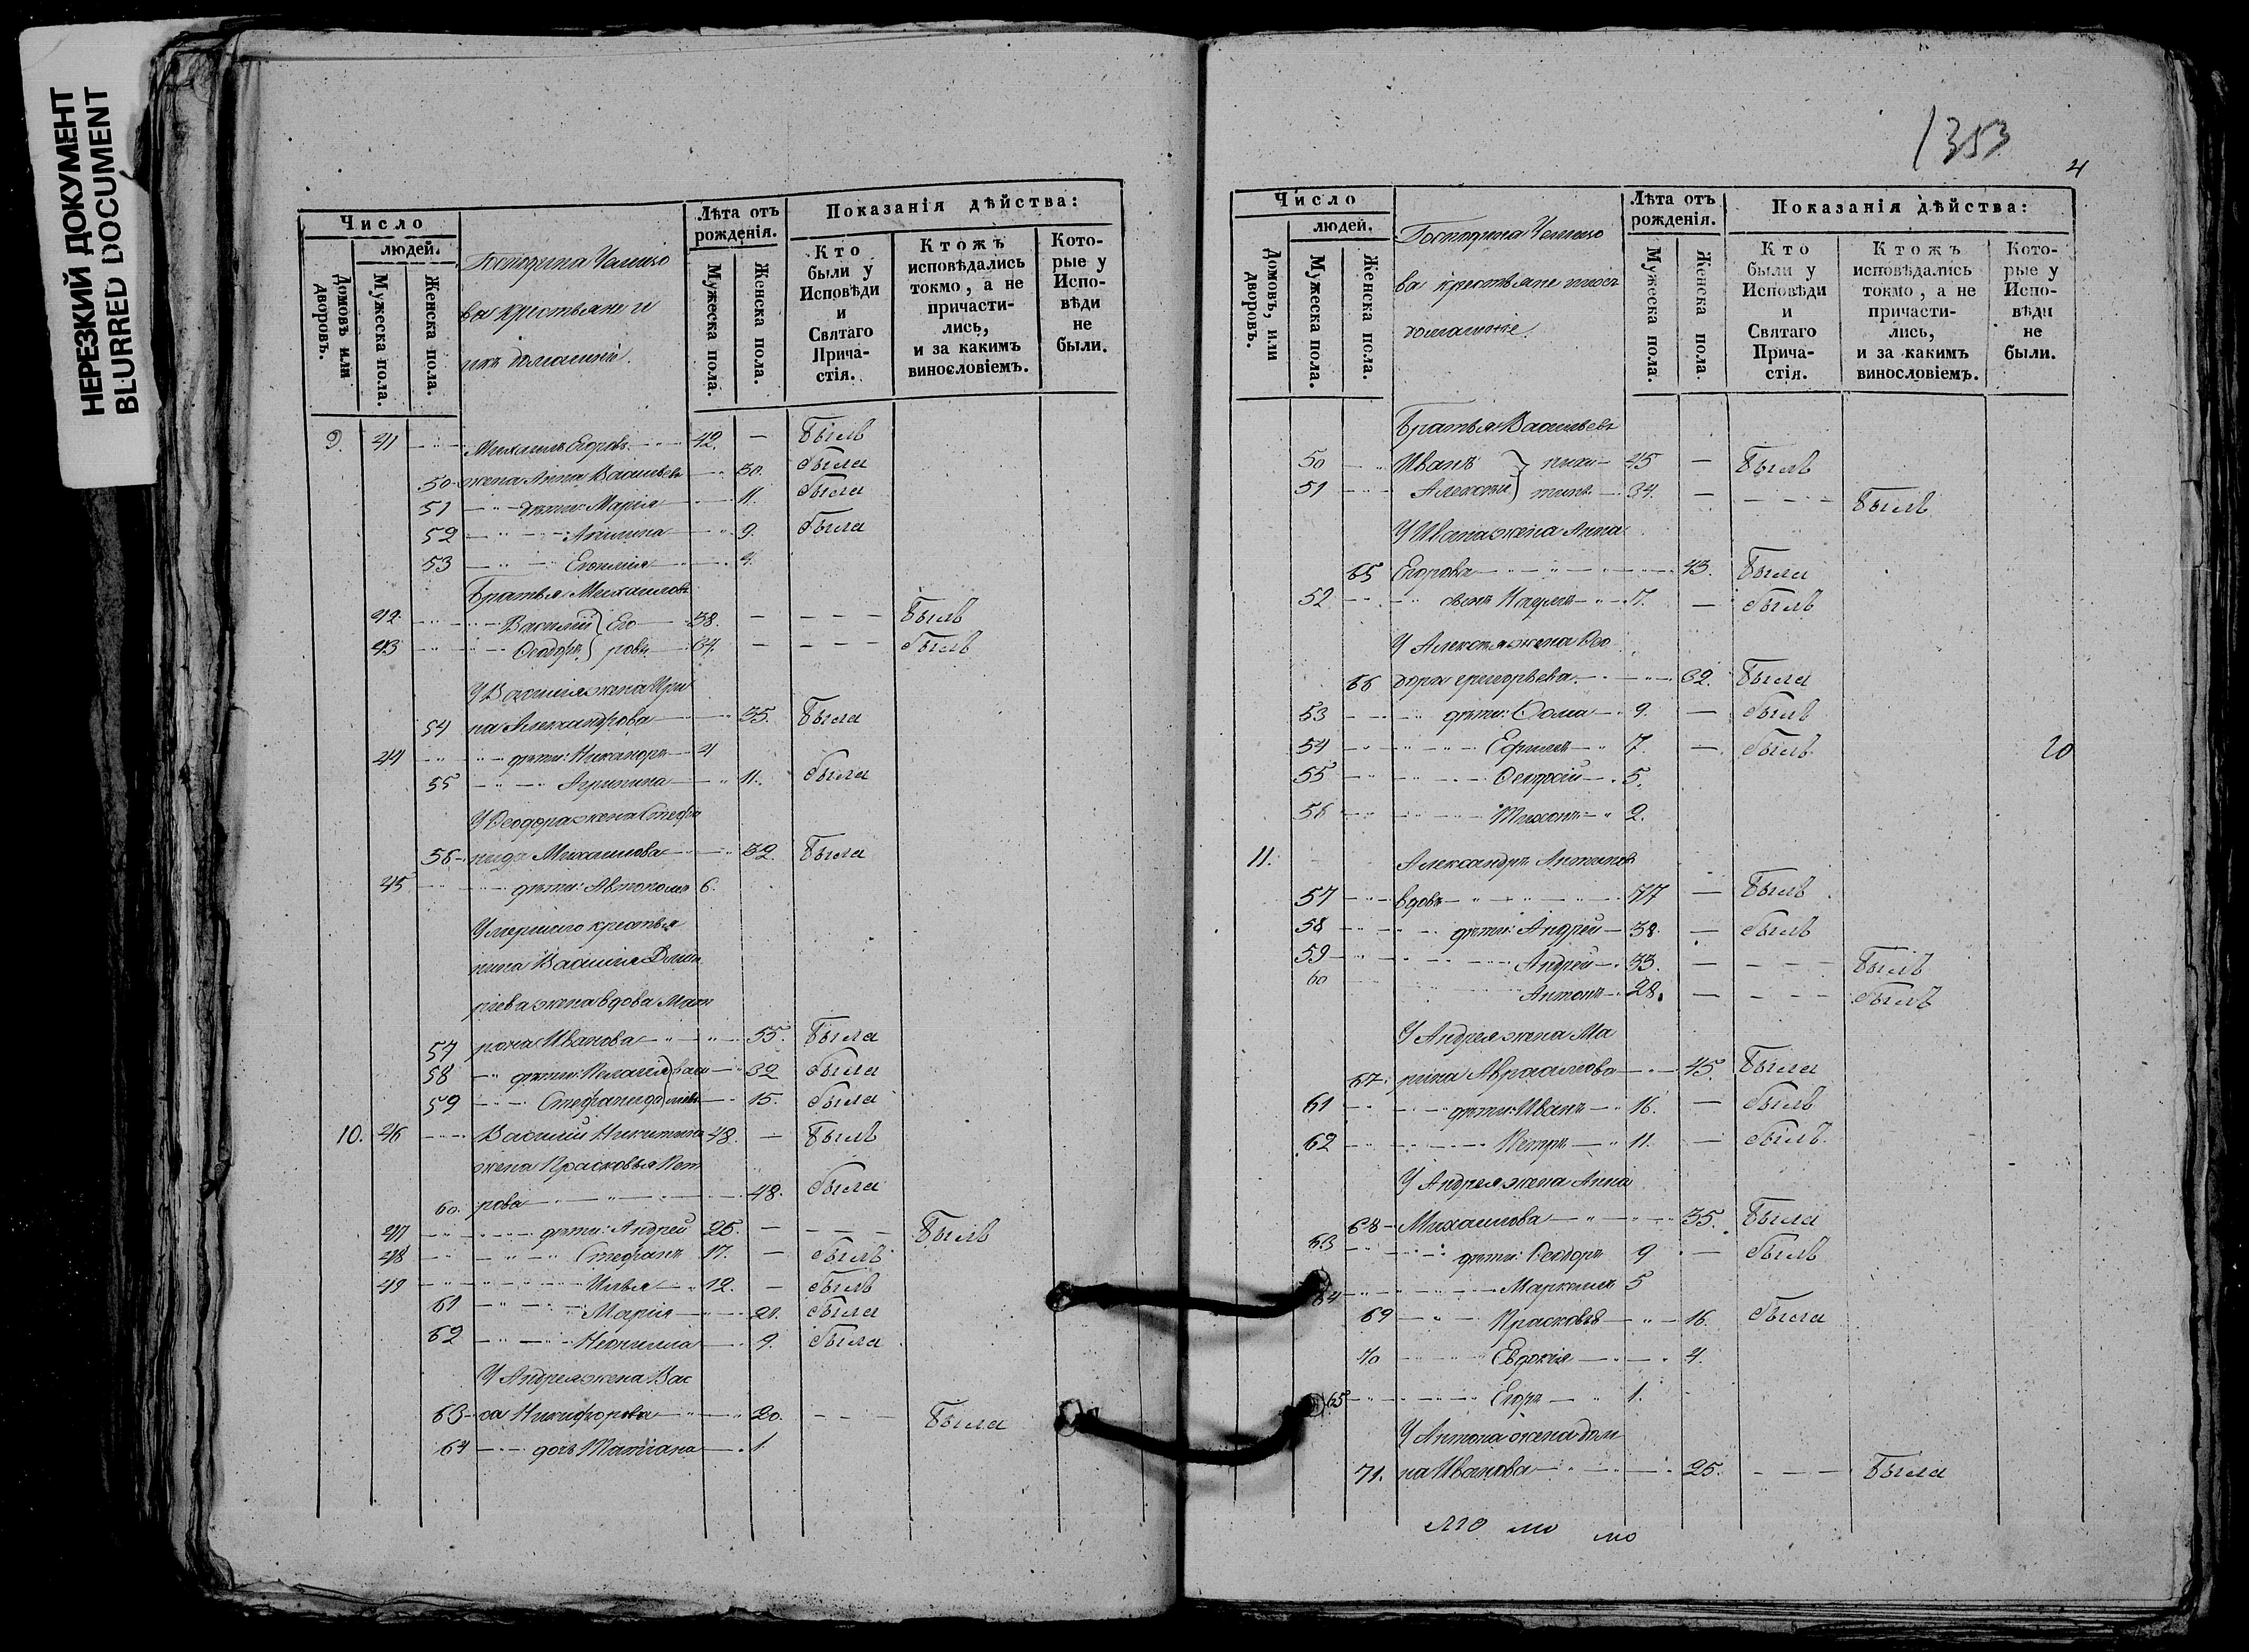 НЕРЕЗКИЙ ДОКУМЕНТ
BLURRED DOCUMENT
Число
людей.
Домовъ или дворовъ.
Мужеска пола.
Женска пола.
Господина
вы крестьяне и
ихъ домашніи.
Лѣта отъ рожденія.
Мужеска пола.
Женска пола.
Показанія дѣйства:
Кто были у Исповѣди и Святаго Причастія.
Ктожъ исповѣдались токмо, а не причастились, и за какимъ винословіемъ.
Которые у Исповѣди не были.
9. 41 Михаилъ Егоровъ 42. — Былъ
50 жена Анна Васильева 50. была
51 дѣти: Марія 11. была
52 Акилина 9. была
53 4.
Братья Михаиловы
42 Василій } Его 38. — — — — Былъ
43 Ѳеодоръ } ровы 34. — — — — былъ
У Василія жена Ири
54 на Александрова 35. Была
44 дѣти: Никаноръ 4
55 Агрипина 11. была
У Ѳеодора жена Стефа
56 нида Михаилова 32. Была
45 дѣти: Автономъ 6.
Умершаго крестья
нина Василія Дмит
ріева жена вдова Мат
57 рона Иванова 55. Была
58 дѣти: Пелагія } Васи 32 была
59 Стефанида } 15. была
10. 46 Василій Никитинъ 48. — Былъ
жена Прасковья Пет
60. рова 48. была
47 дѣти: Андрей 26. — — — — Былъ
48 Стефанъ 17. — былъ
49 Илья 12. — былъ
61 Марія 21. была
62 Неонилла 9. была
У Андрея жена Вас
63 са Никифорова 20. — — Была
64 дочь Татіана 1.
1353
4
Число
людей.
Домовъ, или дворовъ.
Мужеска пола.
Женска пола.
Господина
ва крестьяне
домашніе
Лѣта отъ рожденія.
Мужеска пола.
Женска пола.
Показанія дѣйства:
Кто были у Исповѣди и Святаго Причастія.
Ктожъ исповѣдались токмо, а не причастились, и за какимъ винословіемъ.
Которые у Исповѣди не были.
Братья Васильевы
50 Иванъ } Ники 45 — Былъ
51 Алексѣй } тины 34. — — — — Былъ
У Ивана жена Анна
65 Егорова 43. Была
52 сынъ Наумъ 17. — былъ
У Алексѣя жена Ѳео
66 дора григорьева 32. Была
53 дѣти: Ѳома 9. — былъ
54 Ефимъ 7. — былъ
20
55 5.
56 Тихонъ 2.
11. Александръ Антоновъ
57 вдовъ 77 — Былъ
58 дѣти: Андрей 38. — былъ
59 Андрей 33. — — — — Былъ
60 Антонъ 28. — — — — былъ
У Андрея жена Ма
67. рина Авраамова 45. Была
61 дѣти: Иванъ 16. — былъ
62 Петръ 11. — былъ
У Андрея жена Анна
68 Михаилова 35. Была
63 дѣти: Ѳеодоръ 9 — былъ
64 Маркеллъ 5
69 Прасковья 16. была
70 Евдокія 4.
65 Егоръ 1.
У Антона жена Дом
71. на Иванова 25. — — — Была